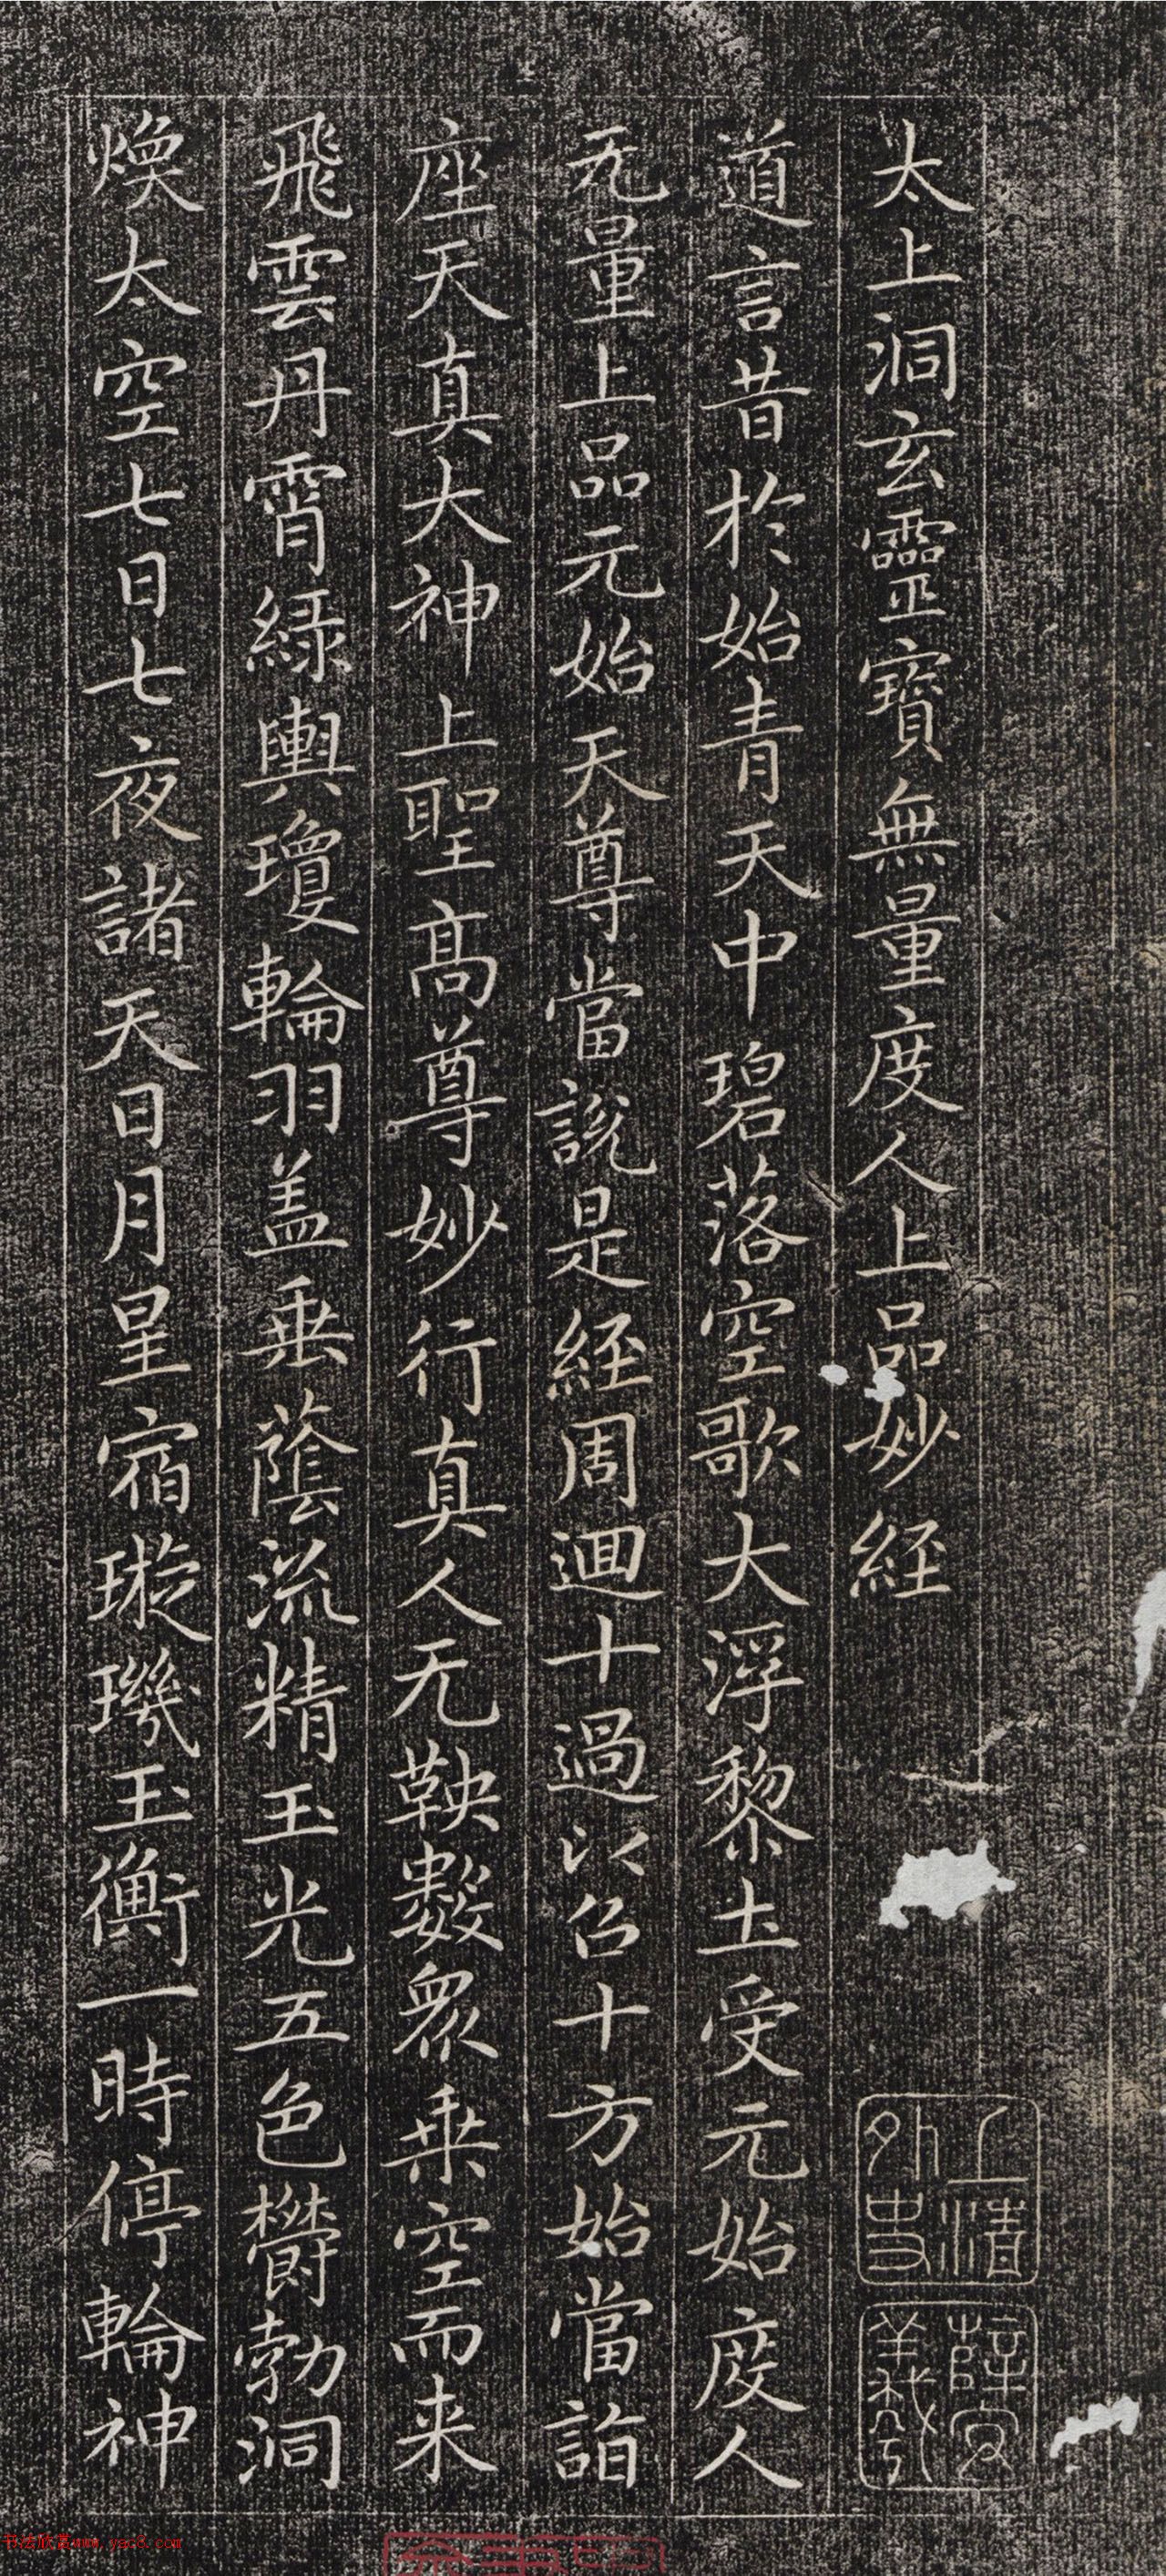 太上洞玄靈寶無量度人上品妙経
道言昔於始青天中碧落空歌大浮黎土受元始度人
无量上品元始天尊當說是経周迴十過以召十方始當詣
座天真大神上聖髙尊妙行真人无鞅數衆乗空而来
飛雲丹霄緑輿瓊輪羽盖垂蔭流精玉光五色欝勃洞
煥太空七日七夜諸天日月星宿璇璣玉衡一時停輪神
上清外史
薛玄
书法欣赏www.yac8.com